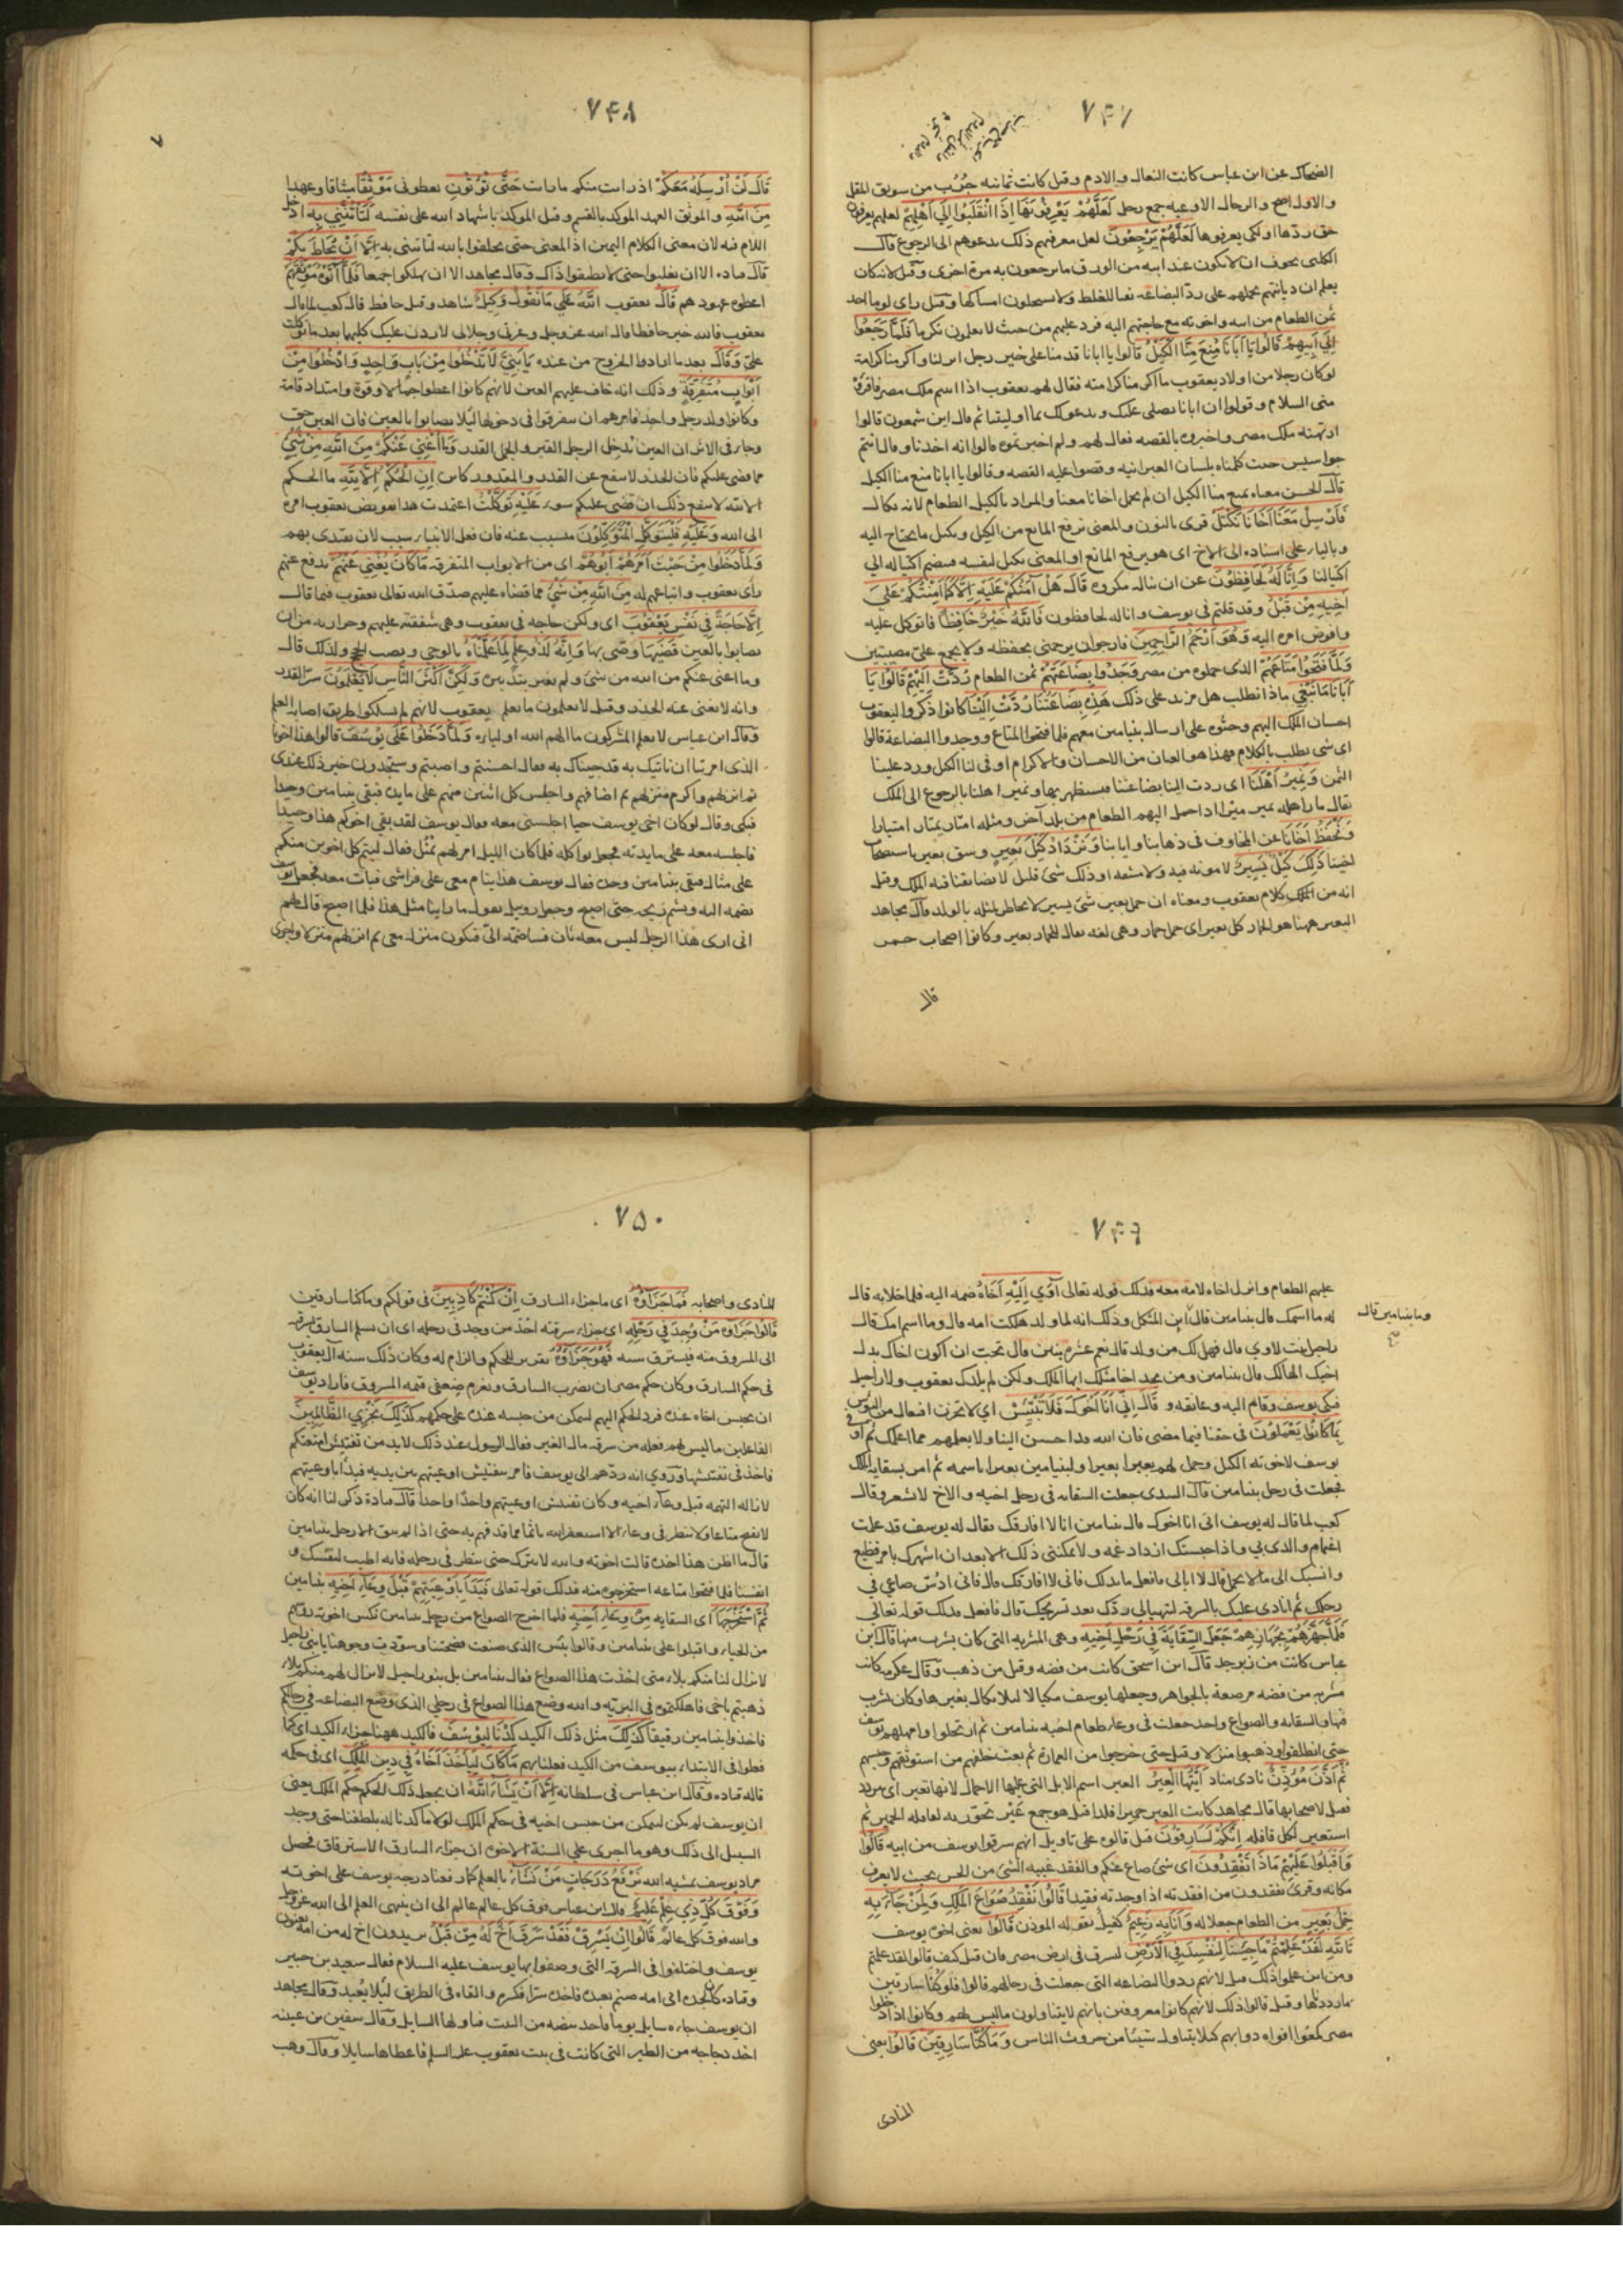 ٧٤٧
الضحاك عن ابن عباس كانت النعال والادم وقيل كانت ثمانية جرب من سويق المقل
والاول اصح والرحال الاوعية جمع رحل لَعَلَّهُمْ يَعْرِفُونَهَا إِذَا انْقَلَبُوا إِلَى أَهْلِهِمْ لعلهم يعرفون
حق ردها او لكي يعرفوها لَعَلَّهُمْ يَرْجِعُونَ لعل معرفتهم ذلك يدعوهم الى الرجوع قال
الكلبي تخوف ان لا يكون عند ابيه من الورق ما يرجعون به مرة اخرى وقيل لانه كان
يعلم ان ديانتهم تحملهم على رد البضاعة نفيا للغلط ولا يستحلون امساكها وقيل راى لوما اخذ
ثمن الطعام من ابيه واخوته مع حاجتهم اليه فرد عليهم من حيث لا يعلمون تكرما فَلَمَّا رَجَعُوا
إِلَى أَبِيهِمْ قَالُوا يَا أَبَانَا مُنِعَ مِنَّا الْكَيْلُ قالوا يا ابانا قدمنا على خير رجل انزلنا واكرمنا كرامة
لو كان رجلا من اولاد يعقوب ما اكرمنا كرامته فقال لهم يعقوب اذا اتيتم ملك مصر فاقرؤه
منى السلام وقولوا ان ابانا يصلى عليك ويدعو لك بما اوليتنا ثم قال اين شمعون قالوا
ارتهنه ملك مصر واخبروه بالقصة فقال لهم ولم اخبرتموه قالوا انه اخذنا وقال انتم
جواسيس حيث كلمناه بلسان العبرانية وقصوا عليه القصة وقالوا يا ابانا منع منا الكيل
قال الحسن معناه يمنع منا الكيل ان لم يحمل اخانا معنا والمراد بالكيل الطعام لانه يكال
فَأَرْسِلْ مَعَنَا أَخَانَا نَكْتَلْ قرى بالنون والمعنى نرفع المانع من الكيل ونكتل ما يحتاج اليه
وبالياء على اسناده الى الاخ اى هو يرفع المانع او المعنى يكتل لنفسه فينضم اكتياله الى
اكتيالنا وَإِنَّا لَهُ لَحَافِظُونَ عن ان يناله مكروه قَالَ هَلْ آمَنُكُمْ عَلَيْهِ إِلَّا كَمَا أَمِنْتُكُمْ عَلَى
أَخِيهِ مِنْ قَبْلُ وقد قلتم فى يوسف وانا له لحافظون فَاللَّهُ خَيْرٌ حَافِظًا فاتوكل عليه
وافوض امره اليه وَهُوَ أَرْحَمُ الرَّاحِمِينَ فارجو ان يرحمنى بحفظه ولا يجمع علىّ مصيبتين
وَلَمَّا فَتَحُوا مَتَاعَهُمْ الذى حملوه من مصر وَجَدُوا بِضَاعَتَهُمْ ثمن الطعام رُدَّتْ إِلَيْهِمْ قَالُوا يَا
أَبَانَا مَا نَبْغِي ماذا نطلب هل مزيد على ذلك هَذِهِ بِضَاعَتُنَا رُدَّتْ إِلَيْنَا كانوا ذكروا ليعقوب
احسان الملك اليهم وحثوه على ارسال بنيامين معهم فلما فتحوا المتاع ووجدوا البضاعة قالوا
اى شى نطلب بالكلام فهذا هو العيان من الاحسان والاكرام اوفى لنا الكيل ورد علينا
الثمن وَنَمِيرُ أَهْلَنَا اى ردت الينا بضاعتنا فنستظهر بها ونمير اهلنا بالرجوع الى الملك
يقال مار اهله يمير ميرا اذا حمل اليهم الطعام من بلد آخر ومثله امتار يمتار امتيارا
وَنَحْفَظُ أَخَانَا عن المخاوف فى ذهابنا وايابنا وَنَزْدَادُ كَيْلَ بَعِيرٍ وسق بعير باستصحاب
اخينا ذَلِكَ كَيْلٌ يَسِيرٌ لا مونة فيه ولا مشقة او ذلك شئ قليل لا يضايقنا فيه الملك وقيل
انه من الملك كلام يعقوب ومعناه ان حمل بعير شئ يسير لا يخاطر لمثله بالولد قال مجاهد
البعير ههنا هو الحمار كيل بعير اى حمل حمار وهى لغة يقال للحمار بعير وكانوا اصحاب حمر
قال
٧٤٨
٧
قَالَ لَنْ أُرْسِلَهُ مَعَكُمْ اذ رايت منكم ما رايت حَتَّى تُؤْتُونِ تعطونى مَوْثِقًا ميثاقا وعهدا
مِنَ اللَّهِ والموثق العهد الموكد بالقسم وقيل الموكد باشهاد الله على نفسه لَتَأْتُنَّنِي بِهِ ادخل
اللام فيه لان معنى الكلام اليمين اذ المعنى حتى يحلفوا بالله لتاتننى به إِلَّا أَنْ يُحَاطَ بِكُمْ
قال قتادة الا ان تغلبوا حتى لا تطيقوا ذاك وقال مجاهد الا ان تهلكوا جميعا فَلَمَّا آتَوْهُ مَوْثِقَهُمْ
اعطوه عهودهم قَالَ يعقوب اللَّهُ عَلَى مَا نَقُولُ وَكِيلٌ شاهد وقيل حافظ قال كعب لما قال
يعقوب فالله خير حافظا قال الله عز وجل وعزتى وجلالى لاردن عليك كليهما بعد ما توكلت
علىّ وَقَالَ بعد ما ارادوا الخروج من عنده يَا بَنِيَّ لَا تَدْخُلُوا مِنْ بَابٍ وَاحِدٍ وَادْخُلُوا مِنْ
أَبْوَابٍ مُتَفَرِّقَةٍ وذلك انه خاف عليهم العين لانهم كانوا اعطوا جمالا وقوة وامتداد قامة
وكانوا ولد رجل واحد فامرهم ان يتفرقوا فى دخولها ليلا يصابوا بالعين فان العين حق
وجاء فى الاثر ان العين تدخل الرجل القبر والجمل القدر وَمَا أُغْنِي عَنْكُمْ مِنَ اللَّهِ مِنْ شَيْءٍ
مما قضى عليكم فان الحذر لا ينفع عن القدر والمقدور كائن إِنِ الْحُكْمُ إِلَّا لِلَّهِ ما الحكم
الا لله لا ينفع ذلك ان قضى عليكم سوء عَلَيْهِ تَوَكَّلْتُ اعتمدت هذا تفويض يعقوب امره
الى الله وَعَلَيْهِ فَلْيَتَوَكَّلِ الْمُتَوَكِّلُونَ مسبب عنه فان فعل الانبياء سبب لان يقتدى بهم
وَلَمَّا دَخَلُوا مِنْ حَيْثُ أَمَرَهُمْ أَبُوهُمْ اى من الابواب المتفرقة مَا كَانَ يُغْنِي عَنْهُمْ يدفع عنهم
راى يعقوب واتباعهم له مِنَ اللَّهِ مِنْ شَيْءٍ مما قضاه عليهم صدّق الله تعالى يعقوب فيما قال
إِلَّا حَاجَةً فِي نَفْسِ يَعْقُوبَ اى ولكن حاجة فى يعقوب وهى شفقته عليهم وحرازته من ان
يصابوا بالعين قَضَيهَا وصّى بها وَإِنَّهُ لَذُو عِلْمٍ لِمَا عَلَّمْنَاهُ بالوحى ونصب الحجج ولذلك قال
وما اغنى عنكم من الله من شئ ولم يغتر بتدبيره وَلَكِنَّ أَكْثَرَ النَّاسِ لَا يَعْلَمُونَ سر القدر
وانه لا يغنى عنه الحذر وقيل لا يعلمون ما يعلم يعقوب لانهم لم يسلكوا طريق اصابة العلم
وقال ابن عباس لا يعلم المشركون ما الهم الله اولياءه وَلَمَّا دَخَلُوا عَلَى يُوسُفَ قالوا هذا اخونا
الذى امرتنا ان ناتيك به قد جيناك به فقال احسنتم واصبتم وستجدون خير ذلك عندى
ثم انزلهم واكرم منزلهم ثم اضافهم واجلس كل اثنين منهم على مايدة فبقى بنيامين وحيدا
فبكى وقال لو كان اخى يوسف حيا اجلسنى معه فقال يوسف لقد بقى اخوكم هذا وحيدا
فاجلسه معه على مايدته فجعل يواكله فلما كان الليل امر لهم بمثل فقال لينم كل اخوين منكم
على مثال فبقى بنيامين وحده فقال يوسف هذا ينام معى على فراشى فبات معه فجعل يوسف
يضمه اليه ويشم ريحه حتى اصبح وجعل روبيل يقول ما راينا مثل هذا فلما اصبح قال لهم
انى ارى هذا الرجل ليس معه ثان فساضمه الىّ فيكون منزله معى ثم انزلهم منزلا واجرى
٧٤٩
عليهم الطعام وانزل اخاه لامه معه فذلك قوله تعالى آوَى إِلَيْهِ أَخَاهُ ضمه اليه فلما خلا به قال
له ما اسمك قال بنيامين قال ابن المثكل وذلك انه لما ولد هلكت امه قال وما اسم امك قال
وما بنيامين قال
صح
راحيل بنت لاوى قال فهل لك من ولد قال نعم عشرة بنين قال تحب ان اكون اخاك بدل
اخيك الهالك قال بنيامين ومن يجد اخا مثلك ايها الملك ولكن لم يلدك يعقوب ولا راحيل
فبكى يوسف وقام اليه وعانقه و قَالَ إِنِّي أَنَا أَخُوكَ فَلَا تَبْتَئِسْ اي لا تحزن افتعال من البؤس
بِمَا كَانُوا يَعْمَلُونَ فى حقنا فيما مضى فان الله قد احسن الينا ولا تعلمهم مما اعلمك ثم اوفى
يوسف لاخوته الكيل وحمل لهم بعيرا بعيرا ولبنيامين بعيرا باسمه ثم امر بسقاية الملك
فجعلت فى رحل بنيامين قال السدى جعلت السقاية فى رحل اخيه والاخ لا يشعر وقال
كعب لما قال له يوسف انى انا اخوك قال بنيامين انا لا افارقك فقال له يوسف قد علمت
اغتمام والدى بي واذا حبستك ازداد غمه ولا يمكننى ذلك الا بعد ان اشهرك بامر فظيع
وانسبك الى ما لا يحمل قال لا ابالى فافعل ما بدا لك فانى لا افارقك قال فانى ادسّ صاعى فى
رحلك ثم انادى عليك بالسرقة ليتهيا لى ردّك بعد تسريحك قال فافعل فذلك قوله تعالى
فَلَمَّا جَهَّزَهُمْ بِجَهَازِهِمْ جَعَلَ السِّقَايَةَ فِي رَحْلِ أَخِيهِ وهى المشربة التى كان يشرب منها قال ابن
عباس كانت من زبرجد قال ابن اسحق كانت من فضة وقيل من ذهب وقال عكرمة كانت
مشربة من فضة مرصعة بالجواهر وجعلها يوسف مكيالا ليلا يكال بغيرها وكان يشرب
فيها والسقاية والصواع واحد جعلت فى وعاء طعام اخيه بنيامين ثم ارتحلوا وامهلهم يوسف
حتى انطلقوا وذهبوا منزلا وقيل حتى خرجوا من العمارة ثم بعث خلفهم من استوثقهم وحبسهم
ثُمَّ أَذَّنَ مُؤَذِّنٌ نادى مناد أَيَّتُهَا الْعِيرُ العير اسم الابل التى عليها الاحمال لانها تعير اى تتردد
فقيل لاصحابها قال مجاهد كانت العير حميرا
استعير لكل قافلة إِنَّكُمْ لَسَارِقُونَ قيل قالوه على تاويل انهم سرقوا يوسف من ابيه قَالُوا
وَأَقْبَلُوا عَلَيْهِمْ مَاذَا تَفْقِدُونَ اى شئ ضاع عنكم والفقد غيبة الشئ من الحس بحيث لا يعرف
مكانه وقرئ تفقدون من افقدته اذا وجدته فقيدا قَالُوا نَفْقِدُ صُوَاعَ الْمَلِكِ وَلِمَنْ جَاءَ بِهِ
حِمْلُ بَعِيرٍ من الطعام جعلا له وَأَنَا بِهِ زَعِيمٌ كفيل يقوله الموذن قَالُوا يعنى اخوة يوسف
تَاللَّهِ لَقَدْ عَلِمْتُمْ مَا جِئْنَا لِنُفْسِدَ فِي الْأَرْضِ لنسرق فى ارض مصر فان قيل كيف قالوا لقد علمتم
ومن اين علموا ذلك قيل لانهم ردوا البضاعة التى جعلت فى رحالهم قالوا فلو كنا سارقين
ما رددناها وقيل قالوا ذلك لانهم كانوا معروفين بانهم لا يتناولون ما ليس لهم وكانوا اذا دخلوا
مصر كمموا افواه دوابهم كيلا يتناول شيئا من حروث الناس وَمَا كُنَّا سَارِقِينَ قَالُوا يعنى
المنادى
٧٥٠
المنادى واصحابه فَمَا جَزَاؤُهُ اى ما جزاء السارق إِنْ كُنْتُمْ كَاذِبِينَ فى قولكم وما كنا سارقين
قَالُوا جَزَاؤُهُ مَنْ وُجِدَ فِي رَحْلِهِ اى جزاء سرقته اخذ من وجد فى رحله اى ان يسلم السارق بسرقته
الى المسروق منه فيسترق سنة فَهُوَ جَزَاؤُهُ تقرير للحكم والزام له وكان ذلك سنة آل يعقوب
فى حكم السارق وكان حكم مصر ان يضرب السارق ويغرم ضعفى قيمة المسروق فاراد يوسف
ان يحبس اخاه عنده فرد الحكم اليهم ليتمكن من حبسه عنده على حكمهم كَذَلِكَ نَجْزِي الظَّالِمِينَ
الفاعلين ما ليس لهم فعله من سرقة مال الغير فقال الرسول عند ذلك لا بد من تفتيش امتعتكم
فاخذ فى تفتيشها وروى انه ردّهم الى يوسف فامر بتفتيش اوعيتهم بين يديه فَبَدَأَ بِأَوْعِيَتِهِمْ
لازالة التهمة قبل وعاء اخيه وكان تفتيش اوعيتهم واحدا واحدا قال قتادة ذكر لنا انه كان
لا يفتح متاعا ولا ينظر فى وعاء الا استغفر الله تاثما مما قذفهم به حتى اذا لم يبق الا رحل بنيامين
قال ما اظن هذا اخذه قالت اخوته والله لا نترك حتى تنظر فى رحله فانه اطيب لنفسك و
انفسنا فلما فتحوا متاعه استخرجوه منه فذلك قوله تعالى فَبَدَأَ بِأَوْعِيَتِهِمْ قَبْلَ وِعَاءِ أَخِيهِ بنيامين
ثُمَّ اسْتَخْرَجَهَا اى السقاية مِنْ وِعَاءِ أَخِيهِ فلما اخرج الصواع من رحل بنيامين نكس اخوته رؤسهم
من الحياء واقبلوا على بنيامين وقالوا بئس الذى صنعت فضحتنا وسوّدت وجوهنا يا بنى راحيل
لا يزال لنا منكم بلاء متى اخذت هذا الصواع فقال بنيامين بل بنو راحيل لا يزال لهم منكم بلاء
ذهبتم باخى فاهلكتموه فى البرية والله وضع هذا الصواع فى رحلى الذى وضع البضاعة فى رحالكم
فاخذوا بنيامين رقيقا كَذَلِكَ مثل ذلك الكيد كِدْنَا لِيُوسُفَ فالكيد ههنا جزاء الكيد اى كما
فعلوا فى الابتداء بيوسف من الكيد فعلنا بهم مَا كَانَ لِيَأْخُذَ أَخَاهُ فِي دِينِ الْمَلِكِ اى فى حكمه
قاله قتادة وقال ابن عباس فى سلطانه إِلَّا أَنْ يَشَاءَ اللَّهُ ان يجعل ذلك الحكم حكم الملك يعنى
ان يوسف لم يكن ليتمكن من حبس اخيه فى حكم الملك لولا ما كدنا له بلطفنا حتى وجد
السبيل الى ذلك وهو ما اجرى على السنة الاخوة ان جزاء السارق الاسترقاق فحصل
مراد يوسف بمشية الله نَرْفَعُ دَرَجَاتٍ مَنْ نَشَاءُ بالعلم كما رفعنا درجة يوسف على اخوته
وَفَوْقَ كُلِّ ذِي عِلْمٍ عَلِيمٌ قال ابن عباس فوق كل عالم عالم الى ان ينتهى العلم الى الله عز وجل
والله فوق كل عالم قَالُوا إِنْ يَسْرِقْ فَقَدْ سَرَقَ أَخٌ لَهُ مِنْ قَبْلُ يريدون اخ له من امه يعنون
يوسف واختلفوا فى السرقة التى وصفوا بها يوسف عليه السلام فقال سعيد بن جبير
وقتادة كان لجده ابى امه صنم يعبده فاخذه سرّا فكسره والقاه فى الطريق ليلا يُعبد وقال مجاهد
ان يوسف جاءه سايل يوما فاخذ بيضة من البيت فناولها السايل وقال سفين بن عيينة
اخذ دجاجة من الطير التى كانت فى بيت يعقوب عليه السلم فاعطاها سايلا وقال وهب